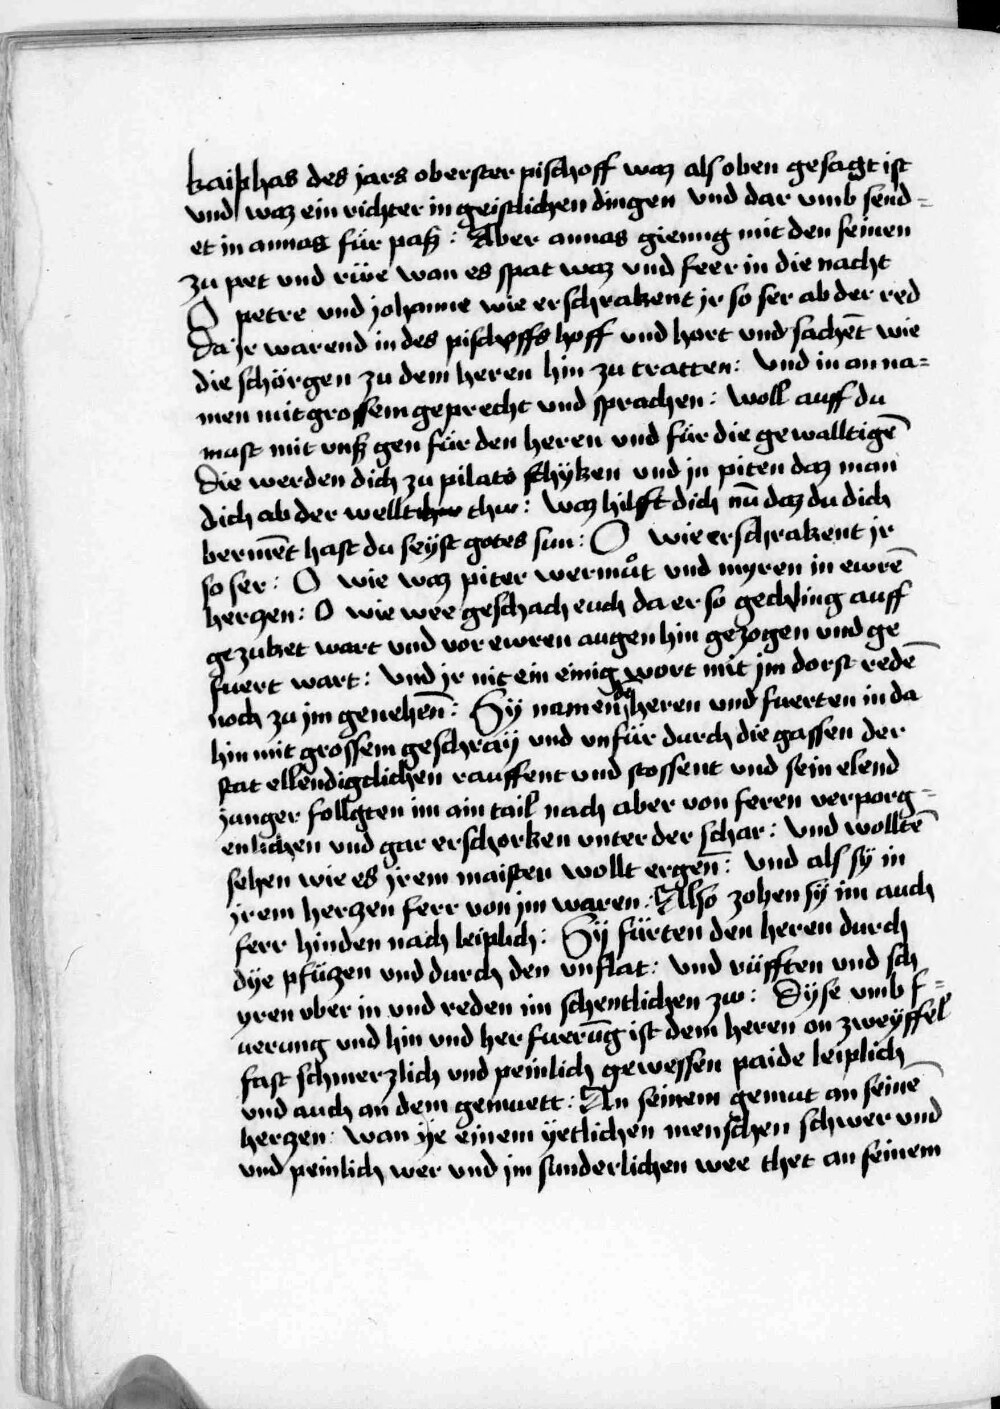 kaiphas des jars oberster pischoff waz als oben gesagt ist
vnd waz ein richter in geistlichen dingen vnd dar vmb send=
et in annas für paß : Aber annas gienng mit den seinen
zu pet vnd rüe wan es spat waz vnd feer in die nacht
O petre vnd johanne wie erschrakent jr so ser ab der red
Da jr warend in des pischoffs hoff vnd hort vnd sachēt wie
die schörgen zu dem heren hin zu tratten : Vnd in an na=
men mit grossem geprecht vnd sprachen : Woll auff du
must mit vnß gen für den heren vnd für die gewalltigē
Die werden dich zu pilato schÿken vnd jn piten daz man
dich ab der wellt thue : Waz hilfft dich nū daz du dich
bermēt hast du seÿst gotes sun : O wie erschrakent jr
so ser : O wie waz piter wermůt vnd myren in ewrē
herczen : O wie wee geschach euch da er so gechling auff
gezuket wart vnd vor ewren augen hin gezogen vnd ge
fuert wart : Vnd jr nit ein einig wort mit jm dorst redē
noch zu jm genehen̄ : Sÿ namen de heren vnd fuerten in da
hin mit grossem geschraÿ vnd vnfür durch die gassen der
stat ellendigclichen rauffent vnd stossent vnd sein elend
junger follgten im ain tail nach aber von feren verporg=
enlichen vnd gar erschorken vnter der schar : Vnd wolltē
sehen wie es jrem maisten wollt ergen̄ : Vnd als sÿ in
jrem herczen ferr von jm waren : Also zohen sÿ im auch
ferr hinden nach leiplich : Sÿ fürten den heren durch
dÿe pfüczen vnd durch den vnflat : Vnd rüfften vnd sch
yren vber in vnd reden im schentlichen zw : Dÿse vmb f=
uerung vnd hin vnd her fuerūg ist dem heren on zweÿffel
fast schmerzlich vnd peinlich gewessen paide leiplich
vnd auch an dem gemuett : An seinem gemut an seinē
herczen : Wan ÿe einem ÿetlichen menschen schwer vnd
vnd peinlich wer vnd jm sunderlichen wee thet an seinem